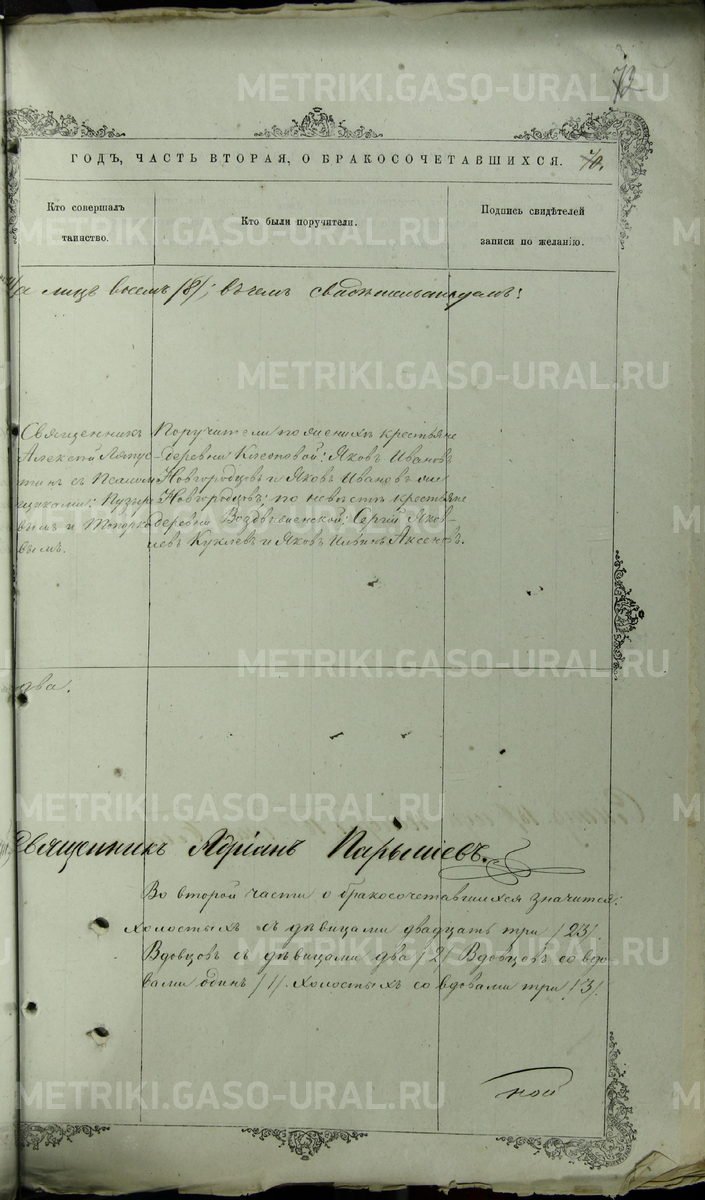 72
ГОДЪ, ЧАСТЬ ВТОРАЯ, О БРАКОСОЧЕТАВШИХСЯ. 70.
Кто совершалъ таинство.
Кто были поручители.
Подпись свидѣтелей записи по желанію.
лицъ восемь /8/; въ чемъ свидѣтельствуемъ:
Священникъ
Алексѣй
тинъ съ Псаломъ
щиками:
вымъ и Топорко
вымъ.
Поручители по женихѣ крестьяне
деревни Ключовой: Яковъ Ивановъ
Новгородцовъ и Яковъ Ивановъ
Новгородцовъ; по невѣстѣ крестьяне
деревни Воздвиженской: Сергій Яков-
левъ Куклевъ и Яковъ Ильинъ Аксеновъ.
два.
Священникъ Адріанъ Парышевъ.
Во второй части о бракосочетавшихся значится:
холостыхъ съ дѣвицами двадцать три /23/
Вдовцовъ съ дѣвицами два /2/ Вдовцовъ со вдо-
вами одинъ /1/. Холостыхъ со вдовами три /3/.
ной
METRIKI.GASO-URAL.RU